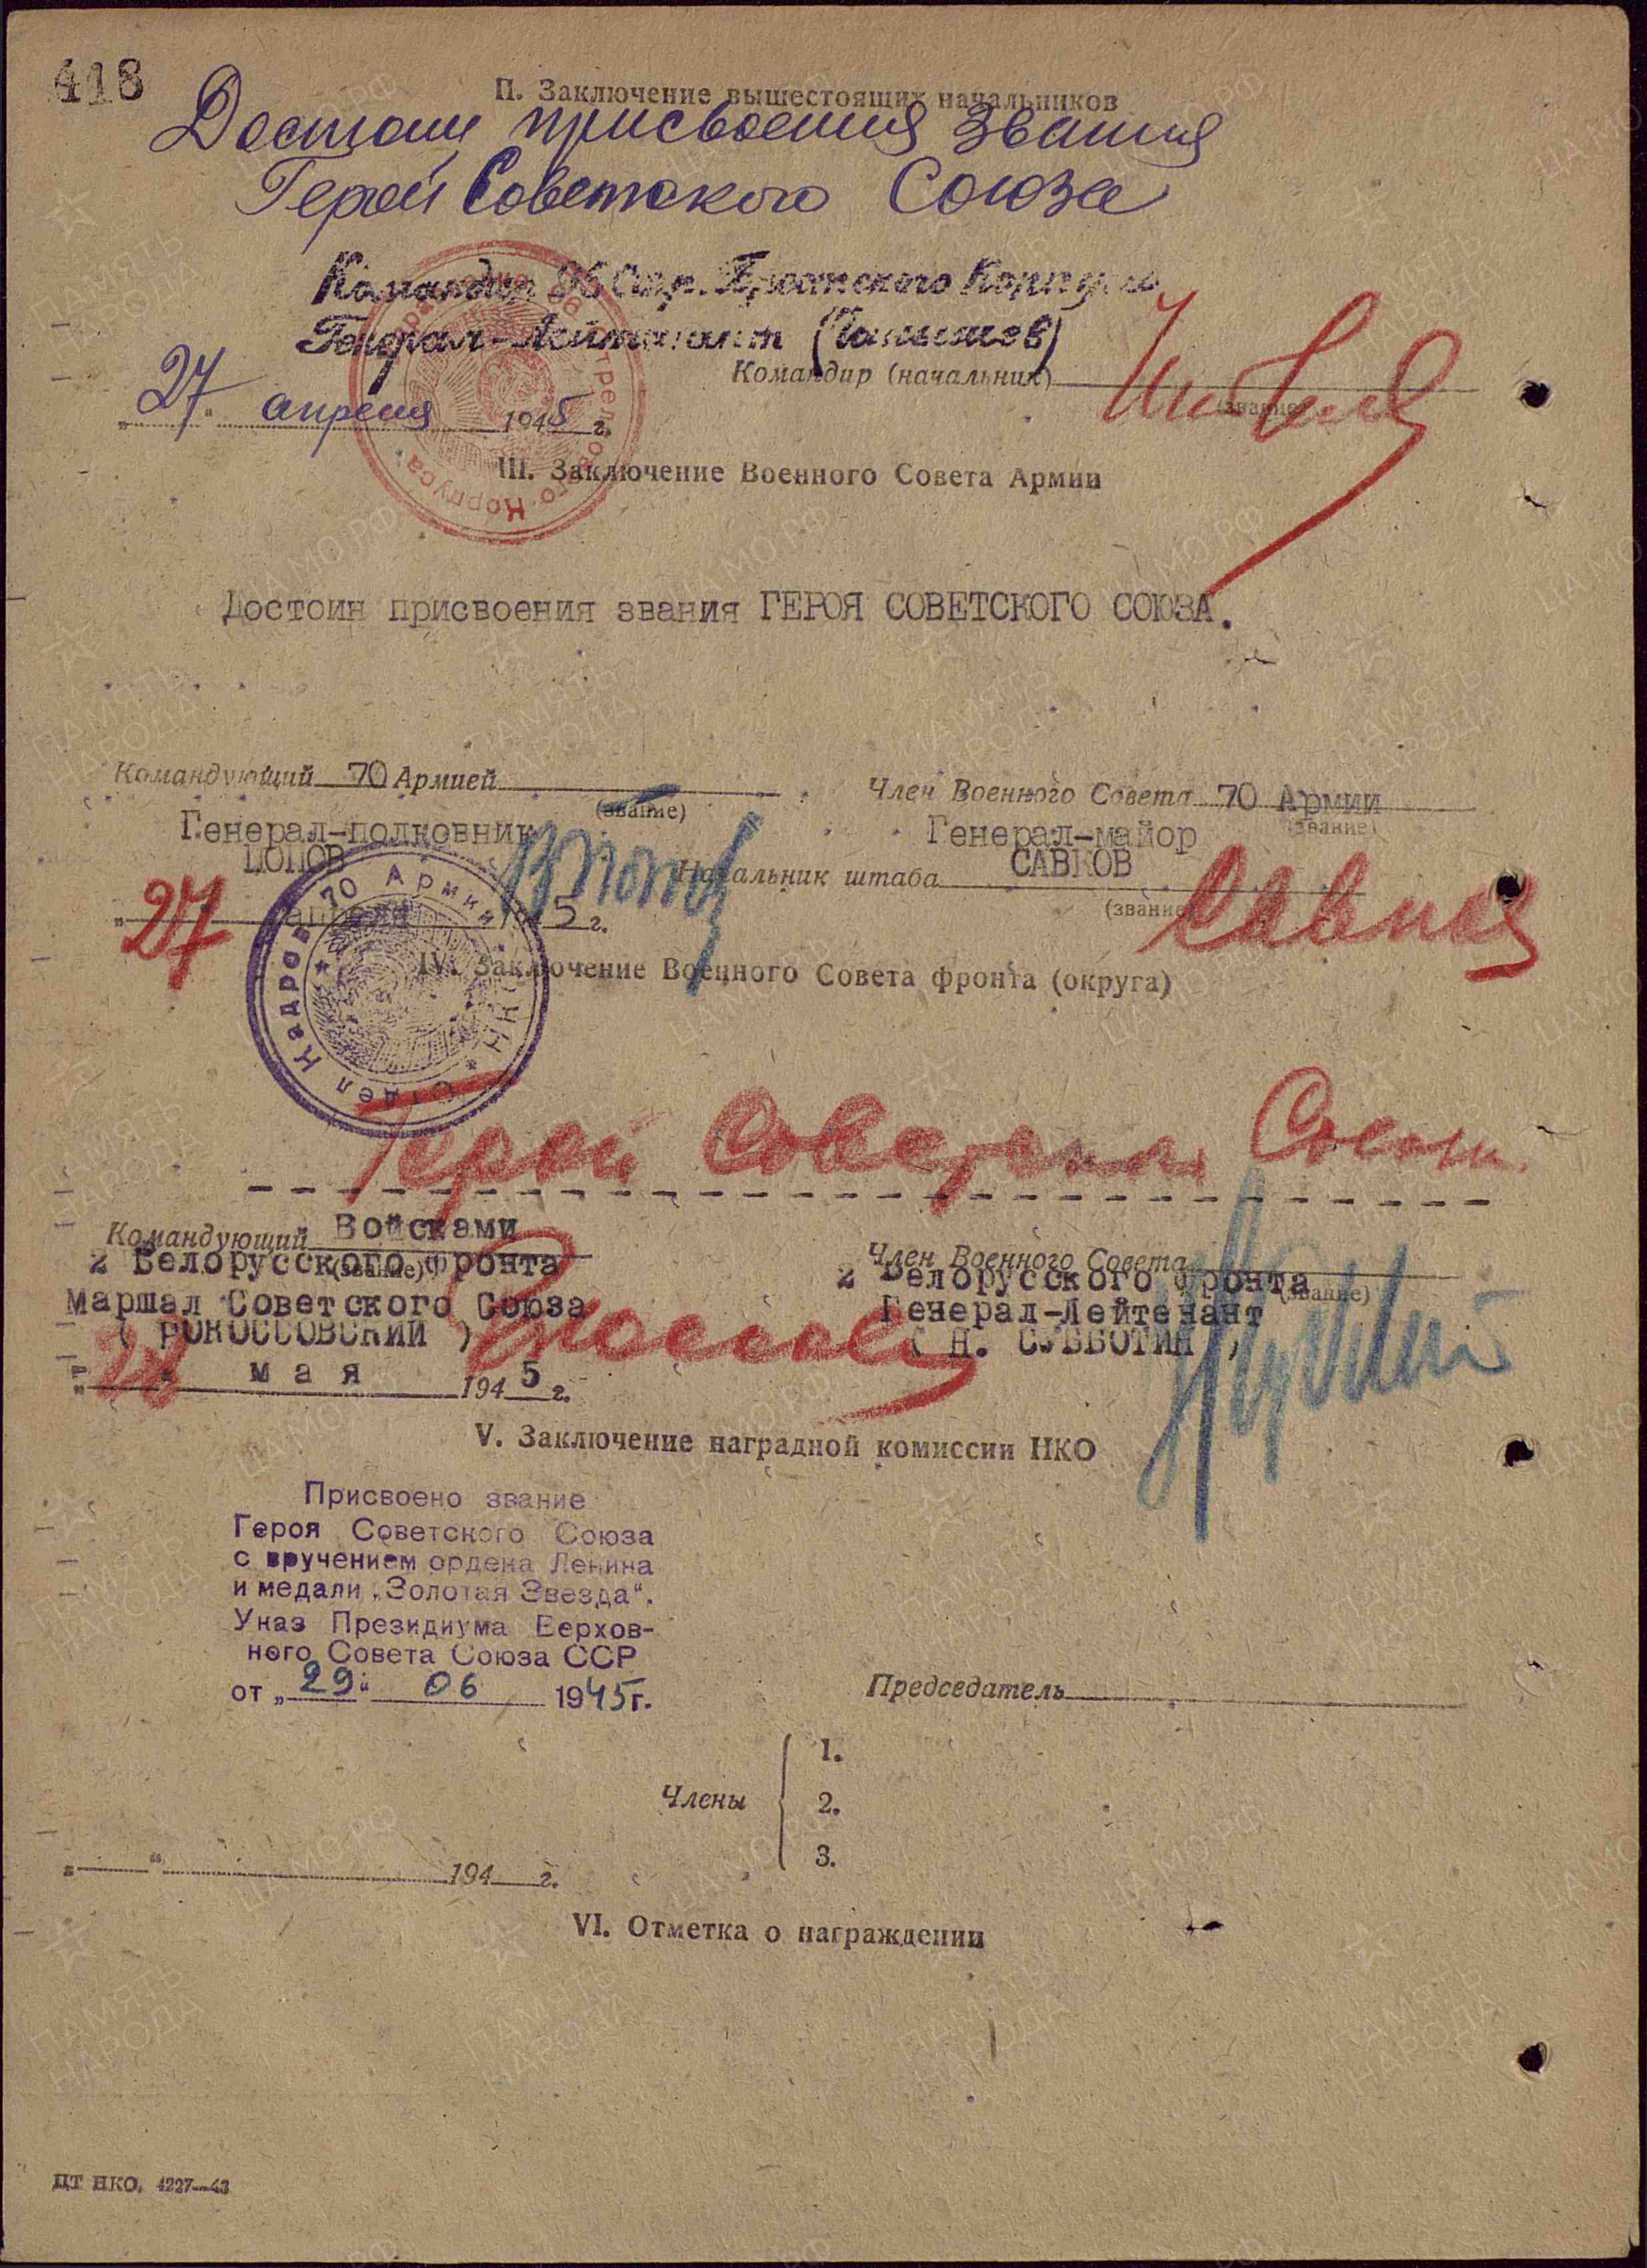 418
П. Заключение вышестоящих начальников
Достоин присвоения звания
Герой Советского Союза
Командир 96 Стр. Брестского Корпуса
Генерал-Лейтенант
Командир (начальник)
(звание)
„27“ апреля 1945 г.
III. Заключение Военного Совета Армии
Достоин присвоения звания ГЕРОЯ СОВЕТСКОГО СОЮЗА.
Командующий 70 Армией
(звание)
Генерал-полковник
ПОПОВ
„27“ апреля 1945 г.
Член Военного Совета 70 Армии
(звание)
Генерал-майор
Начальник штаба САВКОВ
(звание)
Савков
Отдел Кадров 70 Армии
IV. Заключение Военного Совета фронта (округа)
Герой Советского Союза
Командующий Войсками
2 Белорусского Фронта
(звание)
Маршал Советского Союза
( РОКОССОВСКИЙ )
мая 1945 г.
Член Военного Совета
2 Белорусского Фронта
(звание)
Генерал-Лейтенант
( Н. СУББОТИН )
V. Заключение наградной комиссии НКО
Присвоено звание
Героя Советского Союза
с вручением ордена Ленина
и медали „Золотая Звезда“.
Указ Президиума Верхов-
ного Совета Союза ССР
от „29“ 06 1945г.
Председатель
Члены
1.
2.
3.
„ “ 194 г.
VI. Отметка о награждении
ЦТ НКО. 4227—43
ПАМЯТЬ НАРОДА
ЦАМО.РФ